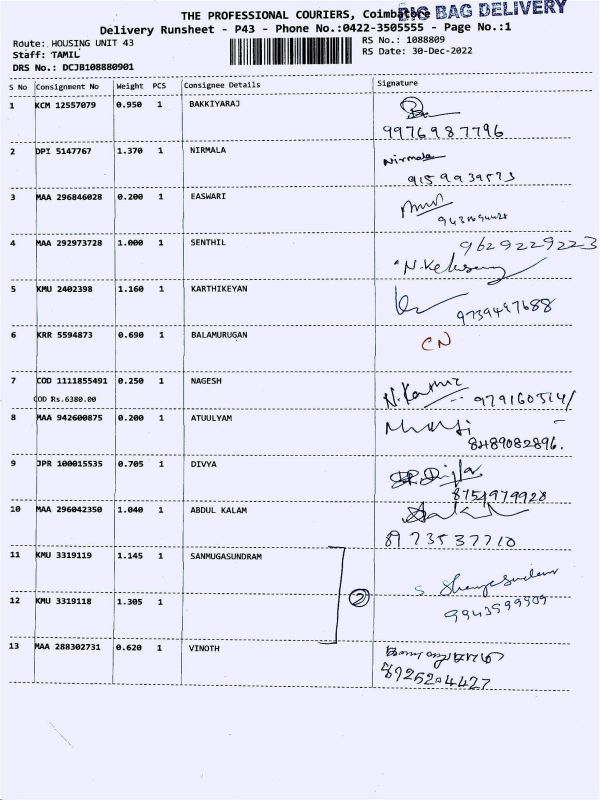 THE PROFESSIONAL COURIERS, Coimbatore BIG BAG DELIVERY
Delivery Runsheet - P43 - Phone No.:0422-3505555 - Page No.:1
Route: HOUSING UNIT 43 RS No.: 1088809
Staff: TAMIL RS Date: 30-Dec-2022
DRS No.: DCJB108880901
S No Consignment No Weight PCS Consignee Details Signature
1 KCM 12557079 0.950 1 BAKKIYARAJ
9976987796
2 DPI 5147767 1.370 1 NIRMALA Nirmala
9159939573
3 MAA 296846028 0.200 1 EASWARI
4 MAA 292973728 1.000 1 SENTHIL 9629229223
5 KMU 2402398 1.160 1 KARTHIKEYAN
9739497688
6 KRR 5594873 0.690 1 BALAMURUGAN CN
7 COD 1111855491 0.250 1 NAGESH N.Kumar
COD Rs.6380.00 9791605141
8 MAA 942600875 0.200 1 ATUULYAM
8489082896.
9 JPR 100015535 0.705 1 DIVYA
8754979928
10 MAA 296042350 1.040 1 ABDUL KALAM
8973537710
11 KMU 3319119 1.145 1 SANMUGASUNDRAM
2
12 KMU 3319118 1.305 1 9943599909
13 MAA 288302731 0.620 1 VINOTH
8925204427